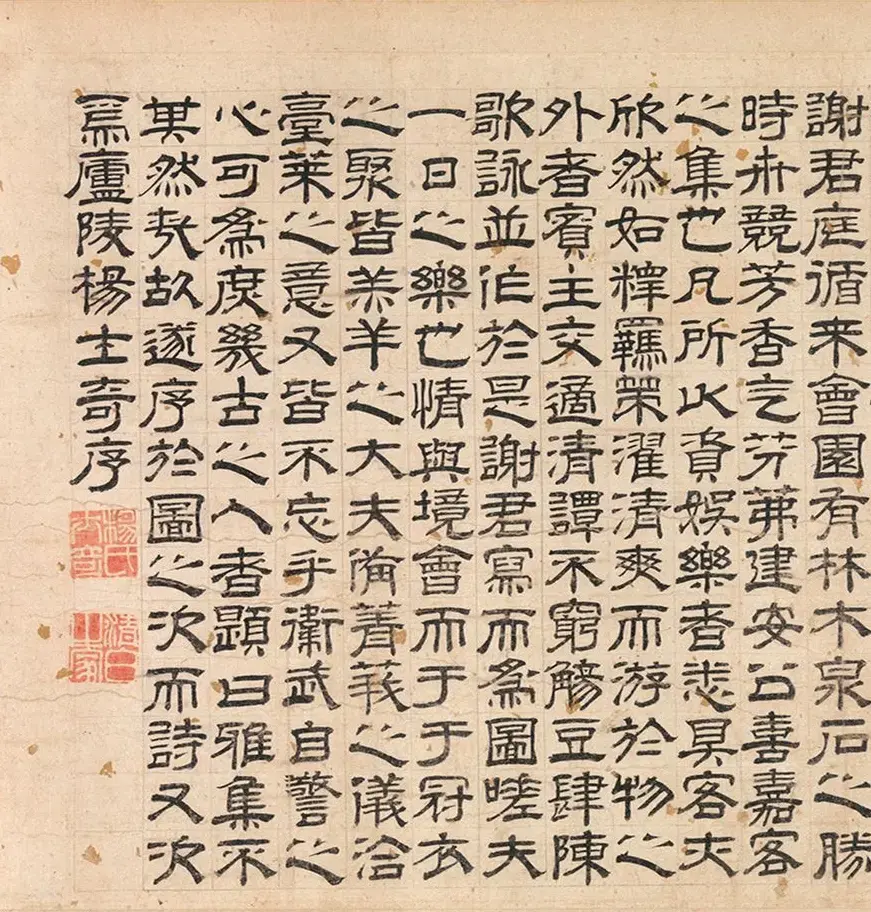 謝君庭循来會園有林木泉石之勝
時卉競芳香气芬茀建安公喜嘉客
之集也凡所以資娛樂者悉具客亦
欣然如釋羈策濯清爽而游於物之
外者賓主交適清譚不窮觴豆肆陳
歌詠並作於是謝君寫而為圖嗟夫
一日之樂也情與境會而于于冠衣
之聚皆羔羊之大夫備菁莪之儀洽
臺萊之意又皆不忘乎衛武自警之
心可為庶幾古之人者題曰雅集不
其然哉故遂序於圖之次而詩又次
焉廬陵楊士奇序